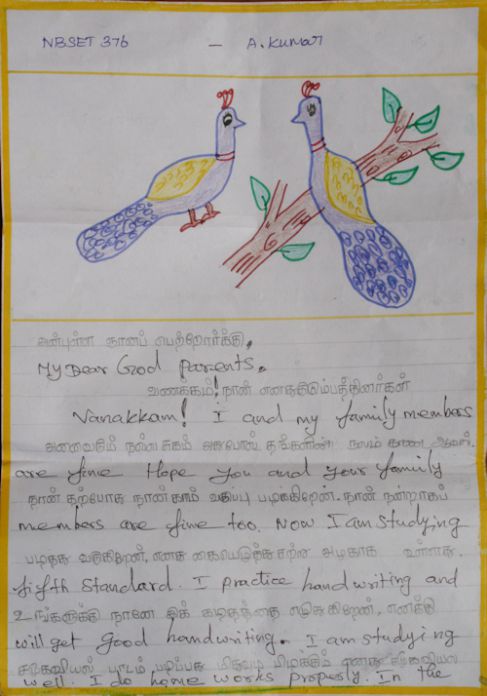 NBSET 376 - A. Kumar
அன்புள்ள ஞானப் பெற்றோர்க்கு,
My Dear God parents.
வணக்கம்! நான் எனதுகுடும்பத்தினர்கள்
Vanakkam! I and my family members
அனைவரும் நலம்
are fine Hope you and your family
நான் தற்போது நான்காம் வகுப்பு படிக்கிறேன். நான் நன்றாகப்
members are fine too. Now I am studying
படித்து வருகிறேன். எனது கையெழுத்து சற்று அழகாக உள்ளது.
fifth standard. I practice handwriting and
உங்களுக்கு நானே இக் கடிதத்தை எழுதுகிறேன். எனக்கு
will get good handwriting. I am studying
பாடம்
well. I do home works properly. In the